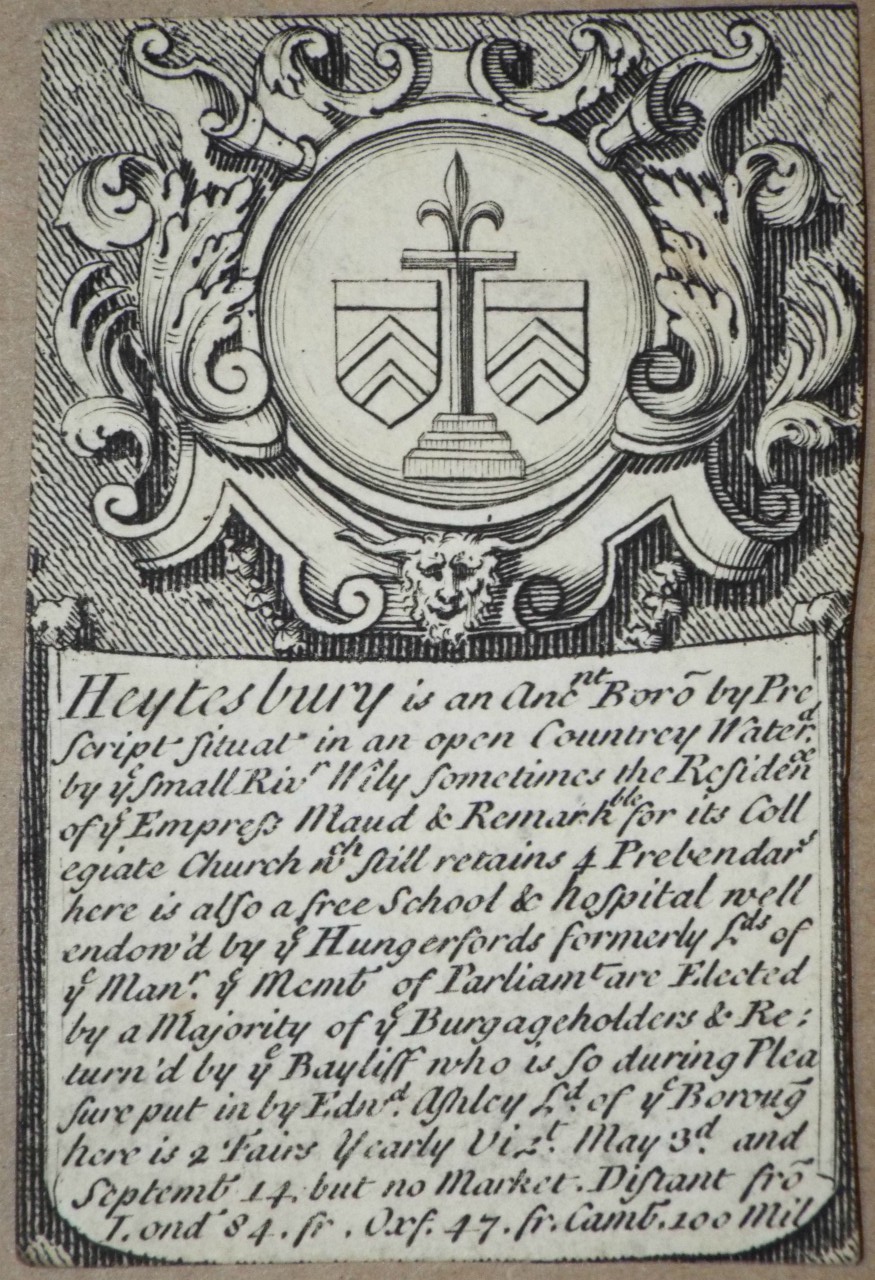 Heytesbury is an Anc.nt Borõ by Pre
script. situat. in an open Countrey Water.d
by yͤ small Riv.r Wily sometimes the Residen ce
of yͤ Empreſs Maud & Remark ble for its Coll
egiate Church wch still retains 4 Prebendar s
here is also a free School & hospital well
endow'd by yͤ Hungerfords formerly L ds of
yͤ Man r. yͤ Memb.s of Parliam t are Elected
by a Majority of yͤ Burgageholders & Re:
turn'd by yͤ Bayliff who is so during Plea
sure put in by Edw d. Ashley L d. of yͤ Boroug̃
here is 2 Fairs Yearly Vizt. May 3 d. and
Septemb. 14. but no Market. Distant frõ
Lond. 84. fr. Oxf. 47. fr. Camb. 100 Mil